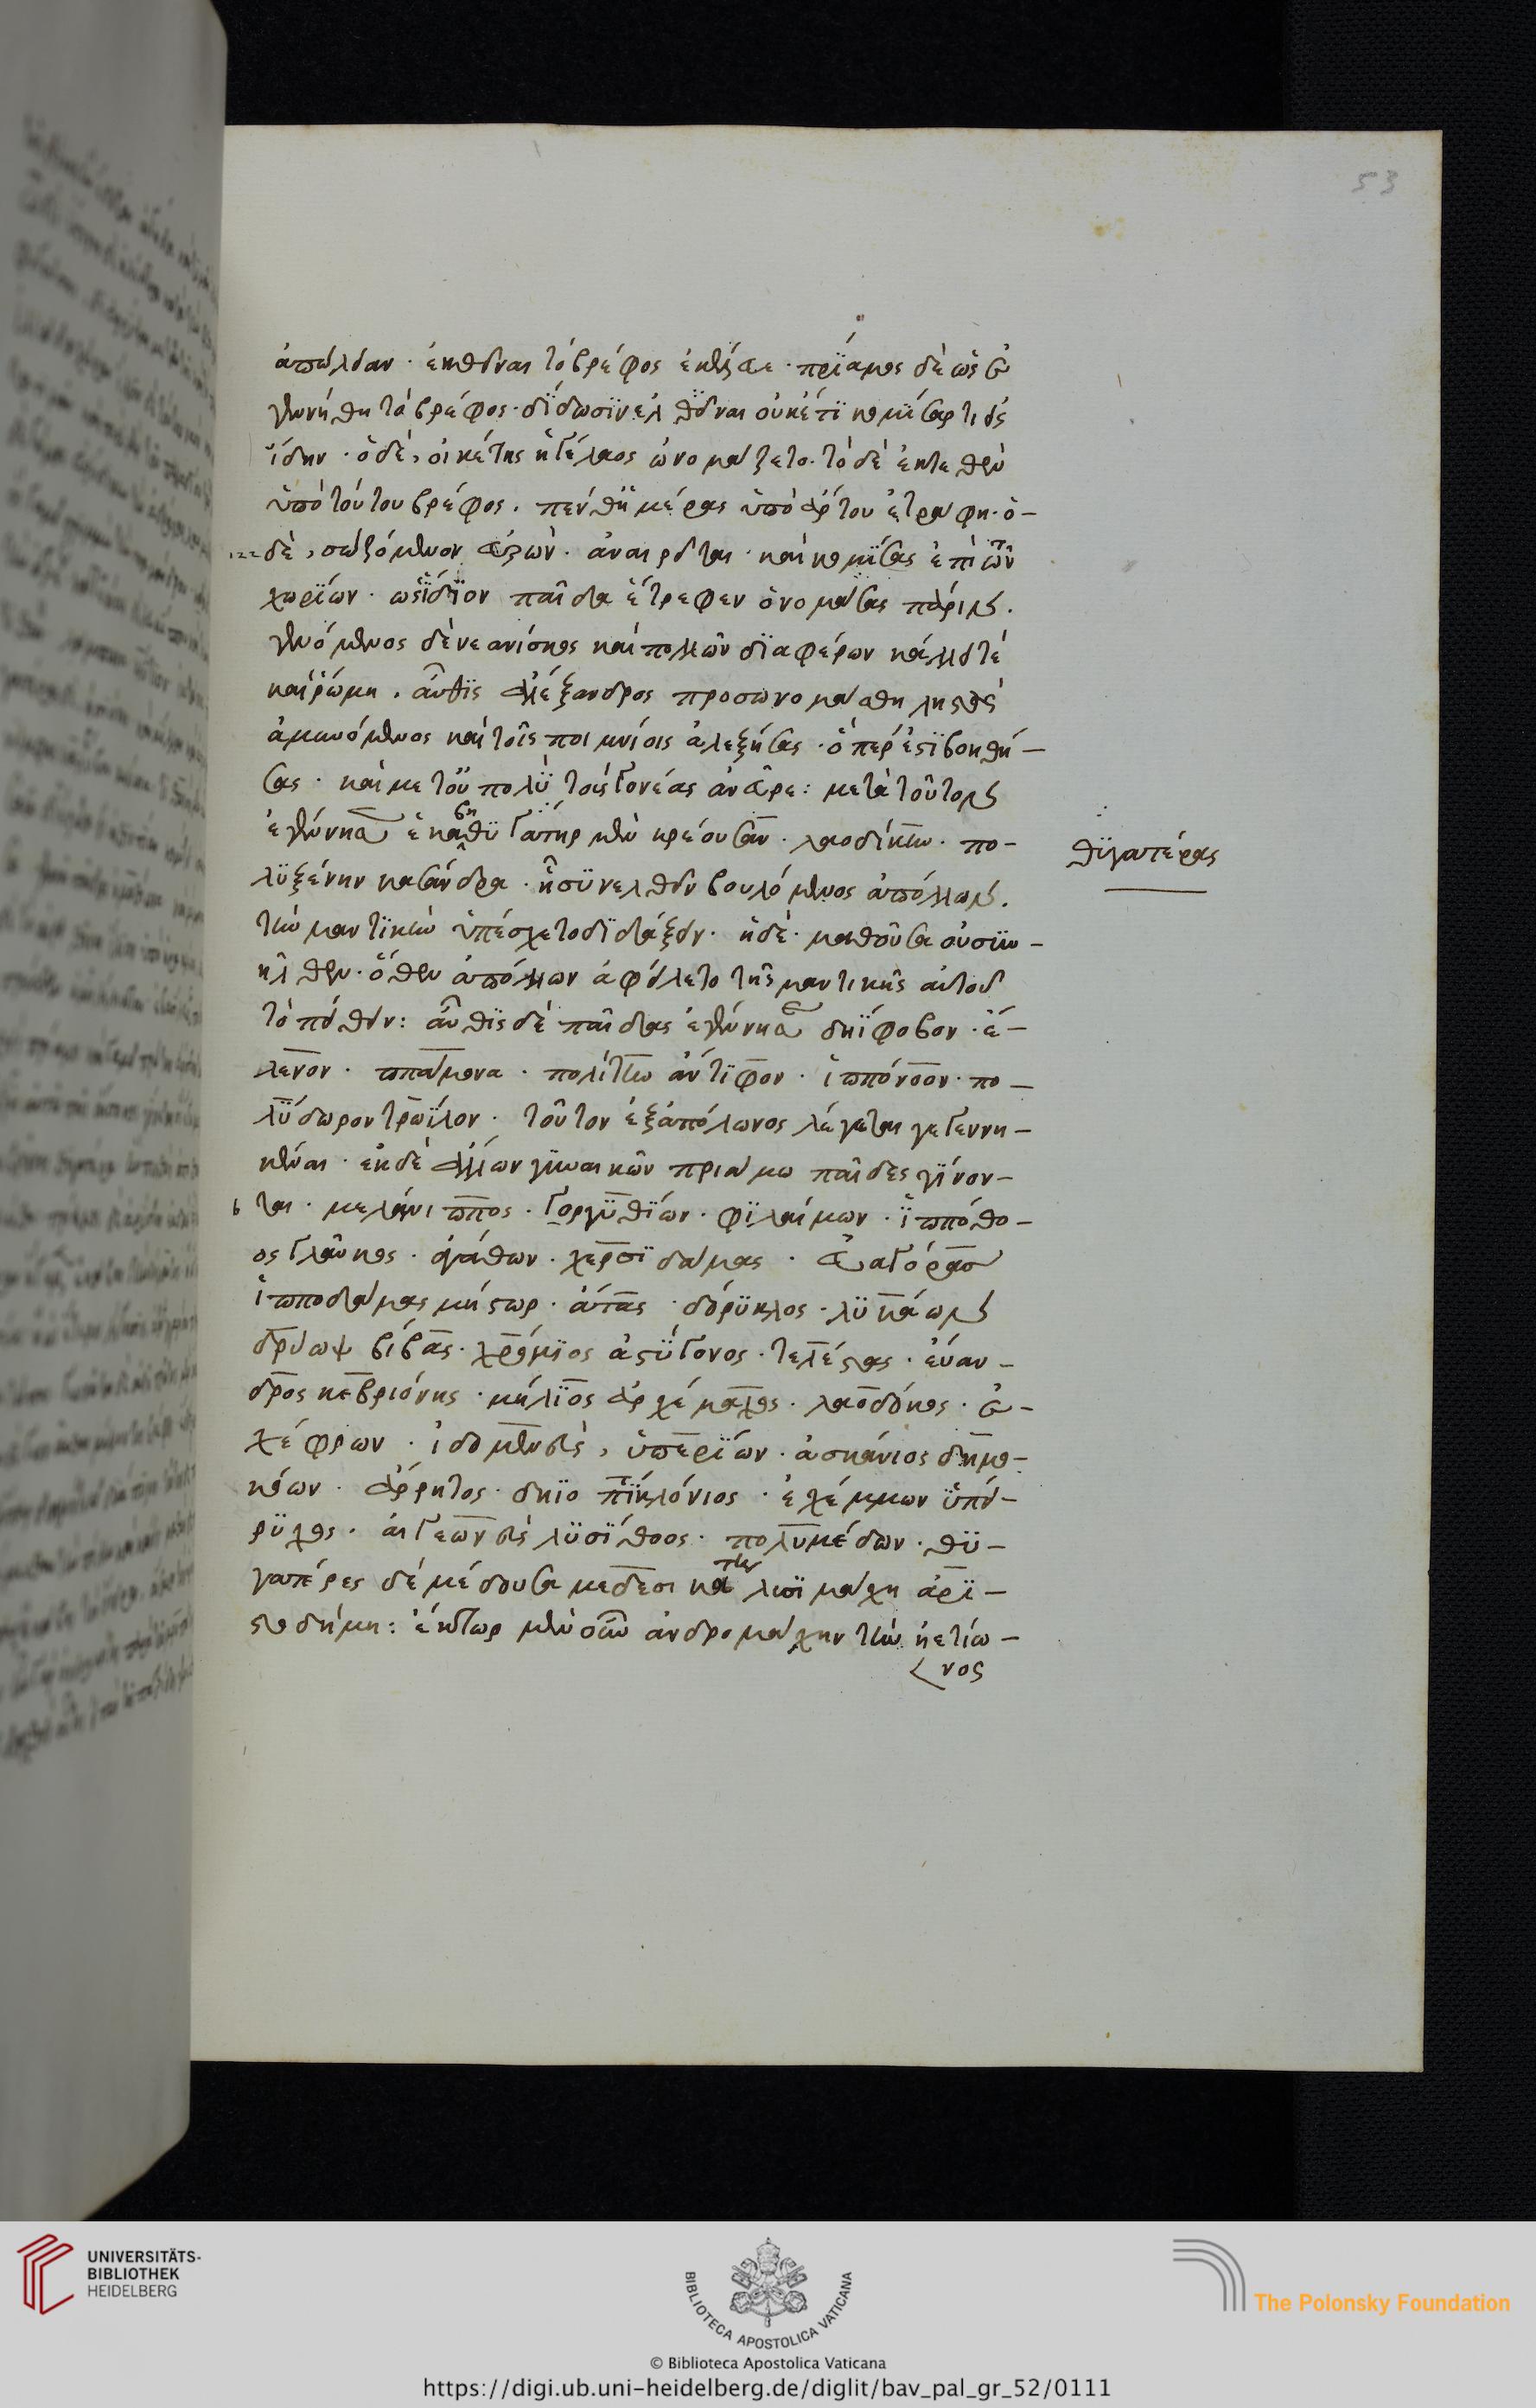 53
ἀπώλειαν · ἐκθεῖναι τὸ βρέφος ἐκέλευε · πρΐαμος δὲ ὡς ἐ
γεννήθη τὸ βρέφος · δΐδωσϊν ἐλθεῖναι οὐκέτϊ κομΐσαντι εἰς
ἴδην · ὁ δὲ, οἰκέτης ἠγέλαος ὠνομάζετο · τὸ δὲ ἐκτεθὲν
ὑπὸ τούτου βρέφος · πένθ ἡμέρας ὑπὸ ἄρτου ἐτράφη · ὁ-
δὲ, σωζόμενον εὑρὼν · ἀναιρεῖται · καὶ κομΐσας ἐπὶ τῶν
χωρΐων · ὡς ἴδϊον παῖδα ἔτρεφεν ὀνομάσας πάριν.
γενόμενος δὲ νεανίσκος καὶ πολλῶν δϊαφέρων κάλλει τὲ
καὶ ῥώμη · αὖθϊς ἀλέξανδρος προσωνομάσθη ληστὰς
ἀμυνόμενος καὶ τοῖς ποιμνίοις ἀλεξήσας · ὅπερ ἐστὶ βοηθή-
σας · καὶ μετ' οὐ πολὺ τοὺς γονέας ἀνεῦρε : μετὰ τοῦτον
ἐγέννησεν ἑκάβη θϋγατέρας μὲν κρέουσαν · λαοδίκην · πο-
λϋξένην κασάνδραν · ᾗ συνελθεῖν βουλόμενος ἀπόλλων.
τὴν μαντϊκὴν ὑπέσχετο δϊδάξειν · ἡ δὲ · μαθοῦσα οὐ συν-
ῆλθεν · ὅθεν ἀπόλλων ἀφείλετο τῆς μαντικῆς αὐτοῦ
τὸ πείθειν : αὖθϊς δὲ παῖδας ἐγέννησε δηΐφοβον · ἕ-
λενον · πάμμονα · πολίτην ἄντϊφον · ἱππόνοον · πο-
λΰδωρον τρωΐλον · τοῦτον ἐξ ἀπόλωνος λέγεται γεγεννη-
κέναι · ἐκ δὲ ἄλλων γϋναικῶν πριάμω παῖδες γίνον-
ται · μελάνιππος · γοργϋθΐων · φϊλαίμων · ἱππόθο-
ος γλαῦκος · ἀγάθων · χερσϊδάμας · εὐαγόρας
ἱπποδάμας μήστωρ · ἄτας · δόρϋκλος · λϋκάων
δρύωψ βίβας · χρόμϊος ἀστΰγονος · τελέστας · εὔαν-
δρος κεβριόνης · μήλϊος ἀρχέμαχος · λαόδοκος · ἐ-
χέφρων · ἰδομενεὺς, ὑπερΐων · ἀσκάνιος δημο-
κόων · ἄρρητος · δηϊοπΐτης κλόνιος · ἐχέμμων ὑπεί-
ρϋχος · αἰγεωνεὺς λϋσΐθοος · πολυμέδων · θϋ-
γατέρες δὲ μέδουσα μεδεσικάστη λϋσϊμάχη ἀρϊ-
στοδήμη : ἕκτωρ μὲν οὖν ἀνδρομάχην τὴν ἠετίω-
νος
θϋγατέρας
UNIVERSITÄTS-
BIBLIOTHEK
HEIDELBERG
BIBLIOTECA APOSTOLICA VATICANA
© Biblioteca Apostolica Vaticana
The Polonsky Foundation
https://digi.ub.uni-heidelberg.de/diglit/bav_pal_gr_52/0111